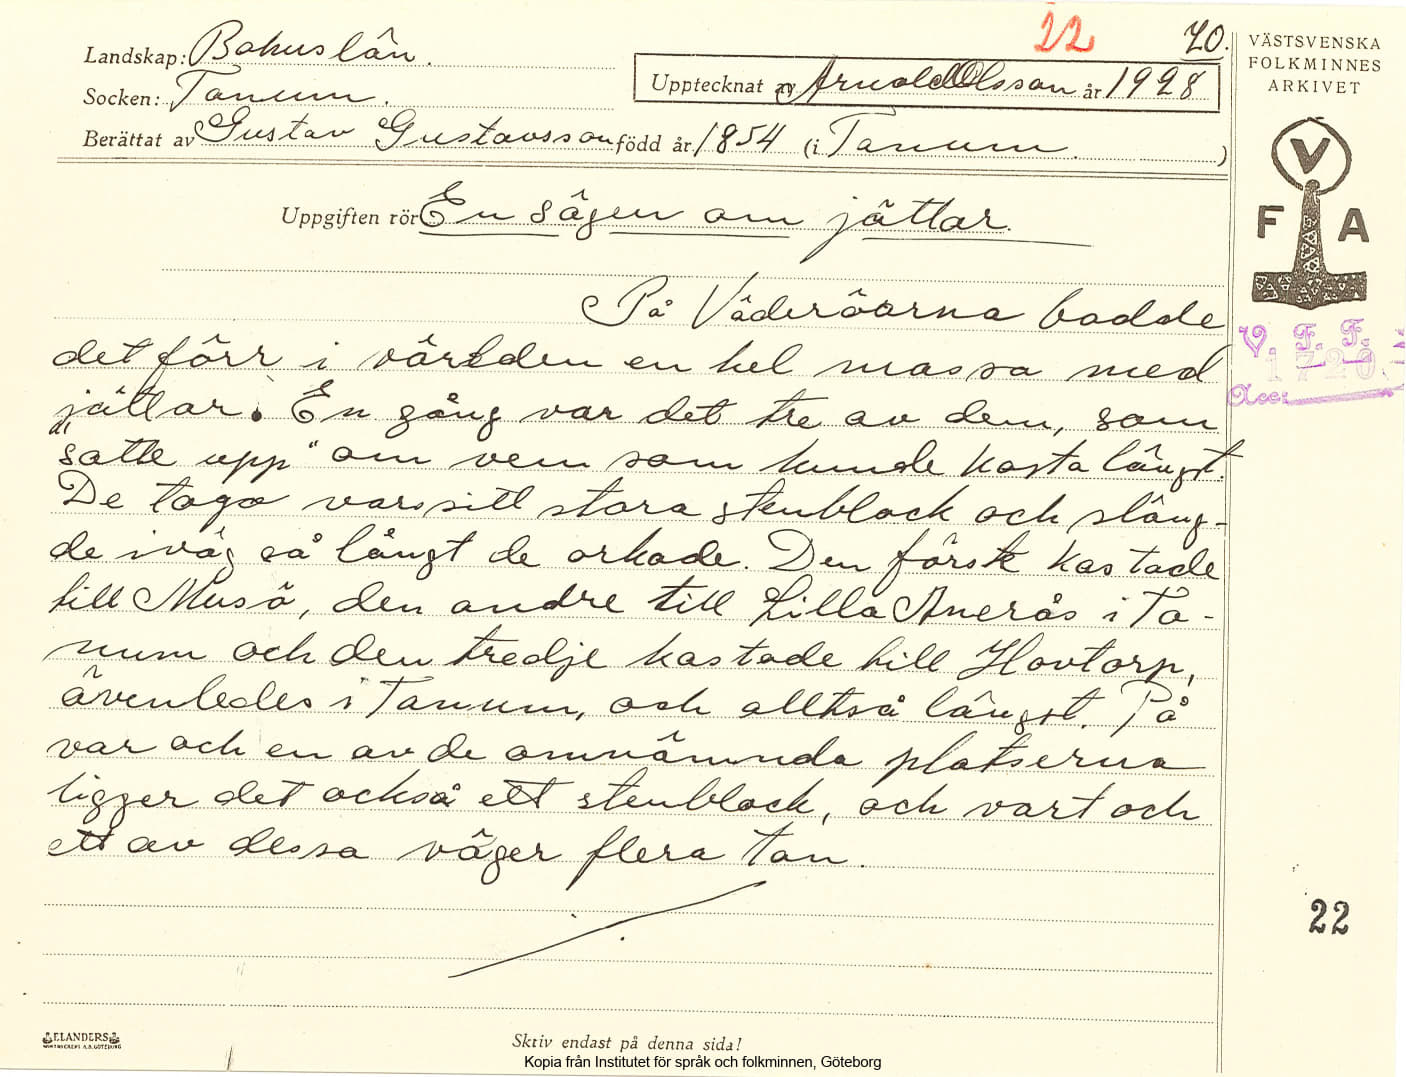 22
70.
Landskap: Bohuslän.
Upptecknat av Arnold Olsson år 1928
Socken: Tanum.
Berättat av Gustav Gustavsson född år 1854 (i Tanum. )
Uppgiften rör En sägen om jättar.
På Väderöarna bodde
det förr i världen en hel massa med
jättar. En gång var det tre av dem, som
"satte upp" om vem som kunde kasta längst.
De togo varsitt stora stenblock och släng-
de iväg så långt de orkade. Den förste kastade
till Musö, den andre till Lilla Anerås i Ta-
num och den tredje kastade till Hovtorp,
ävenledes i Tanum, och alltså längst. På
var och en av de omnämnda platserna
ligger det också ett stenblock, och vart och
ett av dessa väger flera ton.
VÄSTSVENSKA
FOLKMINNES
ARKIVET
V
F A
V. F. F.
1720
Acc:
22
ELANDERS
Skriv endast på denna sida!
Kopia från Institutet för språk och folkminnen, Göteborg